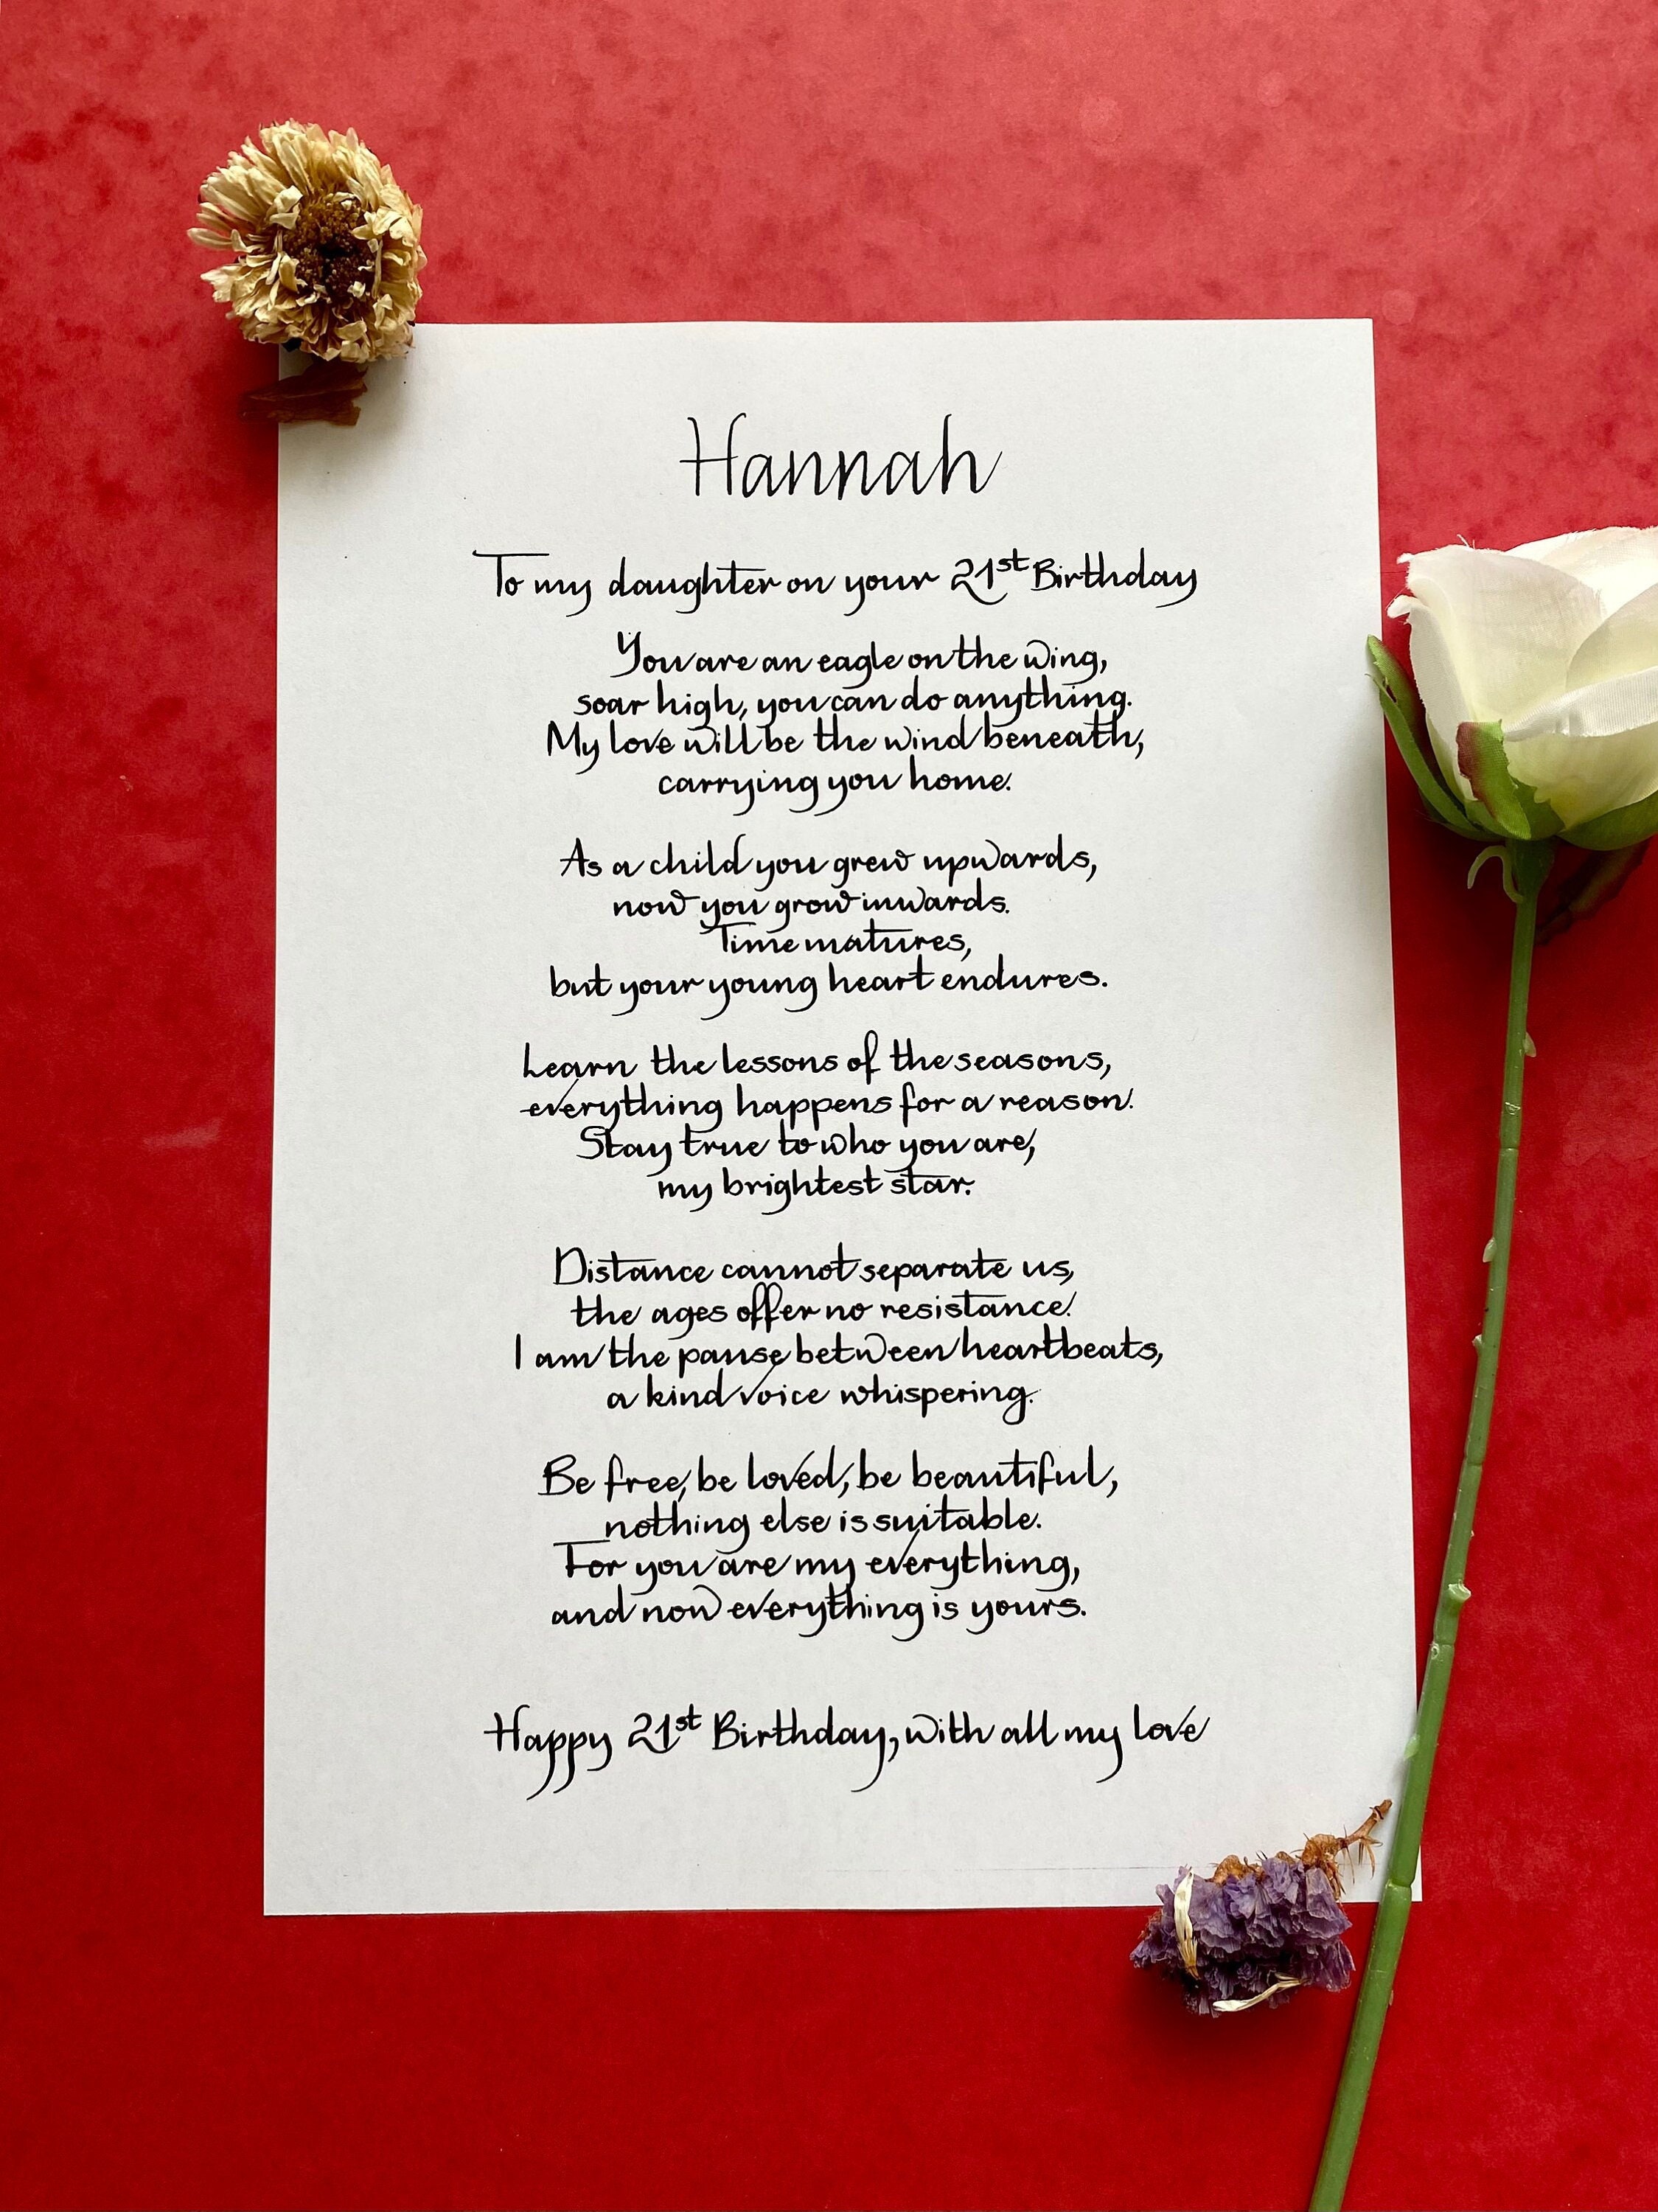 Hannah
To my daughter on your 21st Birthday
You are an eagle on the wing,
soar high, you can do anything.
My love will be the wind beneath,
carrying you home.
As a child you grew upwards,
now you grow inwards.
Time matures,
but your young heart endures.
Learn the lessons of the seasons,
everything happens for a reason.
Stay true to who you are,
my brightest star.
Distance cannot separate us,
the ages offer no resistance.
I am the pause between heartbeats,
a kind voice whispering.
Be free, be loved, be beautiful,
nothing else is suitable.
For you are my everything,
and now everything is yours.
Happy 21st Birthday, with all my love